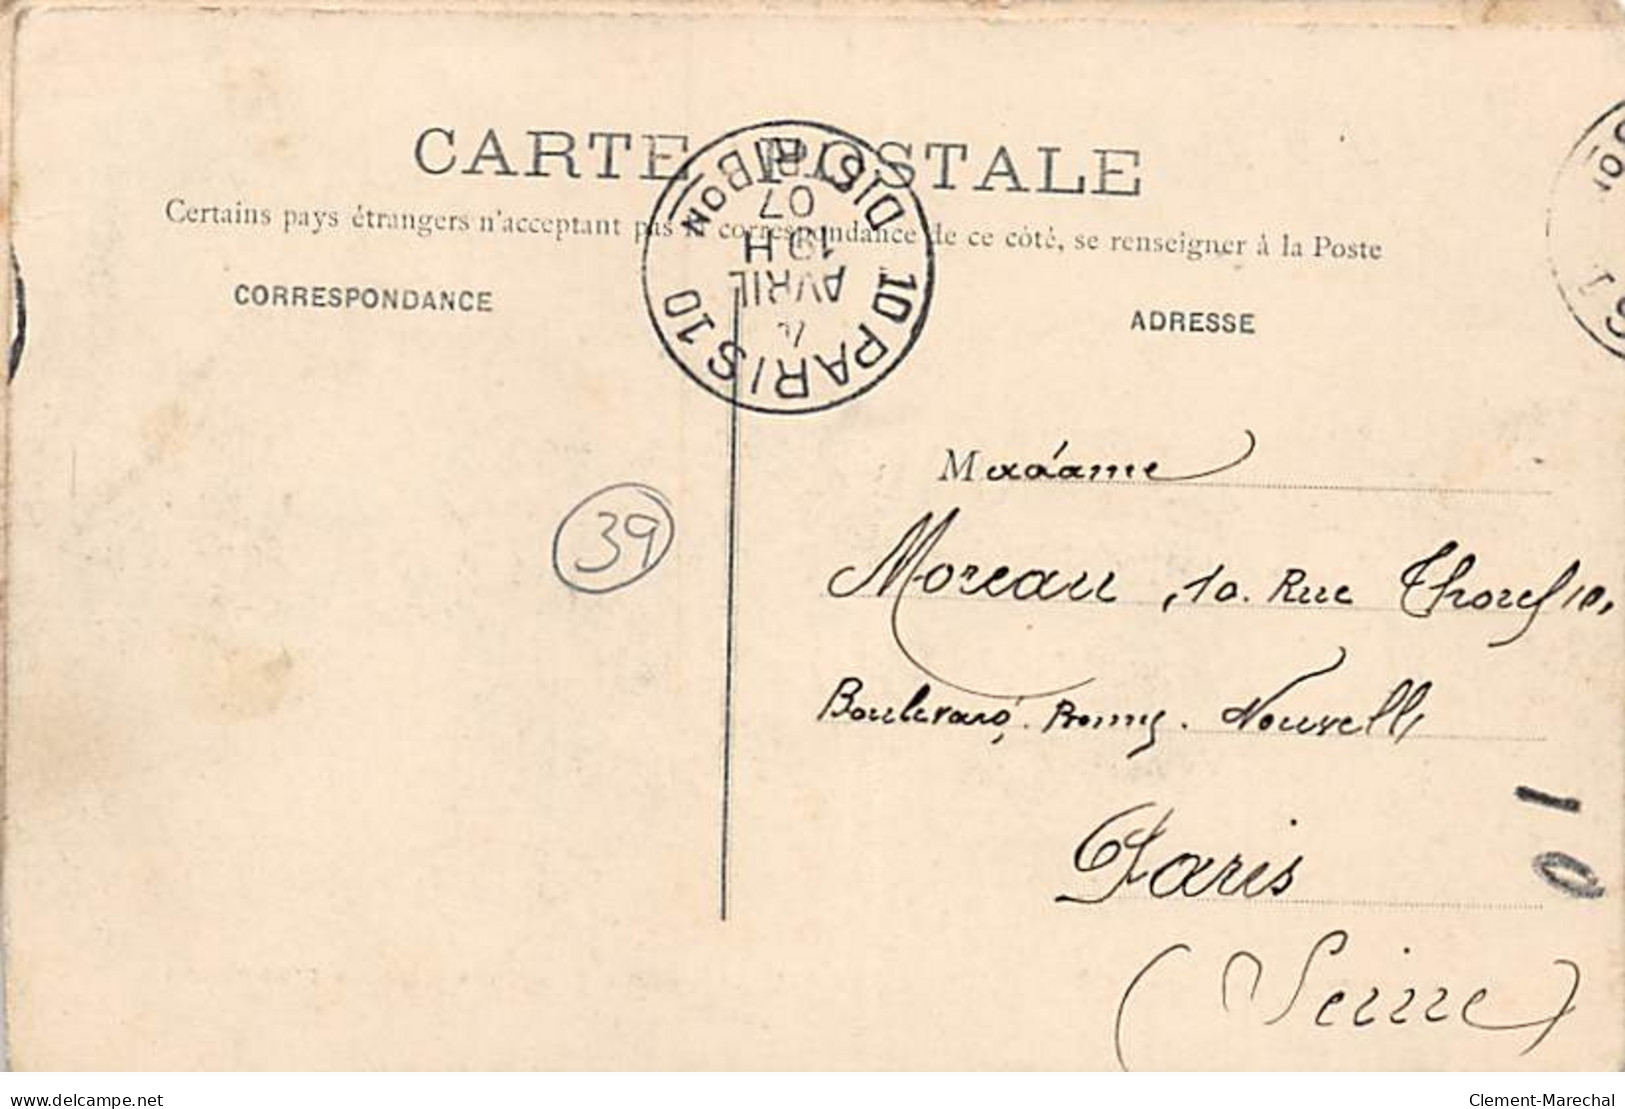 CARTE POSTALE
Certains pays étrangers n'acceptant pas la correspondance de ce côté, se renseigner à la Poste
CORRESPONDANCE
ADRESSE
10 PARIS 10
DISTRIBON
AVRIL
07
39
Madame
Moreau, 10. Rue
Boulevard. Bonny. Nouvelle
Paris
(Seine)
10
www.delcampe.net
Clement-Marechal